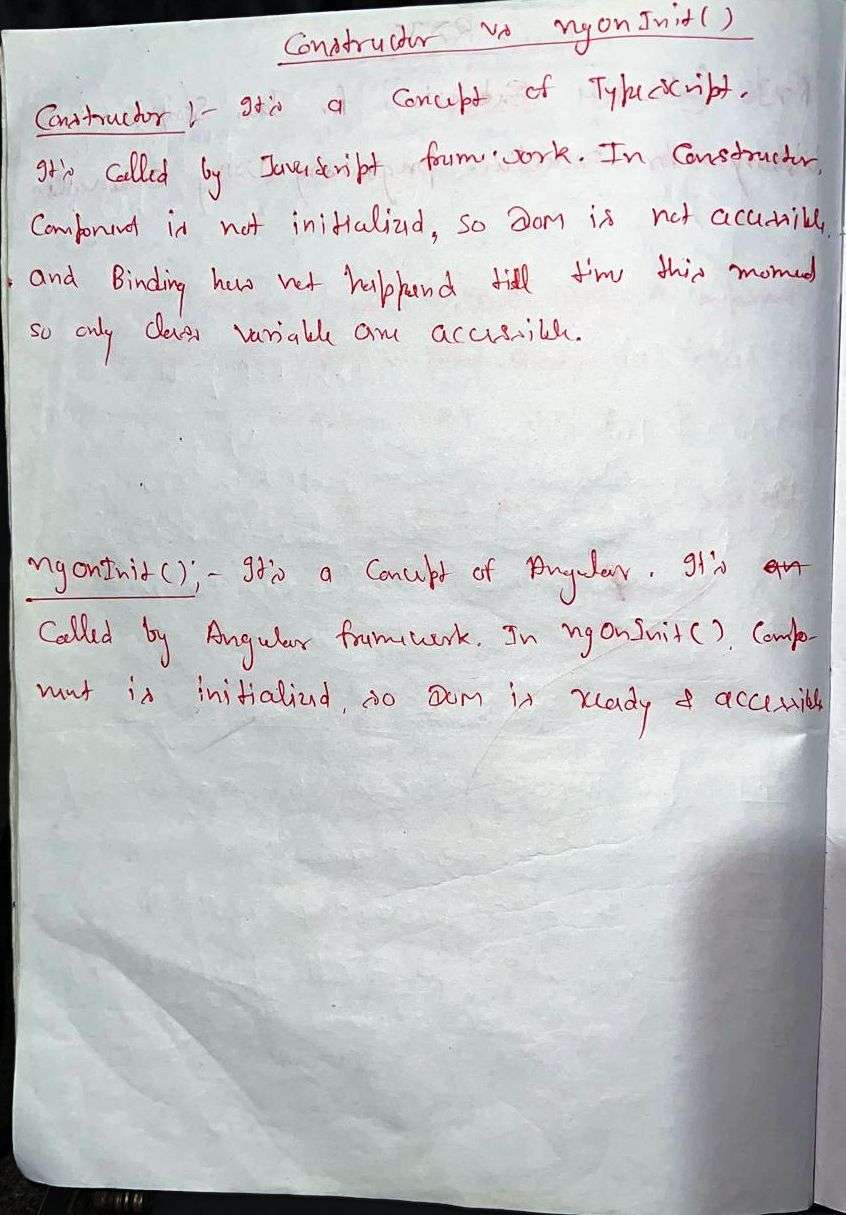 Constructor vs ngonInit()
Constructor :- It's a Concept of Typescript.
It's Called by JavaScript framework. In Constructor,
Component is not initialized, so Dom is not accessible,
and Binding has not happend till time this moment
so only class variable are accessible.
ngonInit() :- It's a Concept of Angular. It's an
Called by Angular framework. In ngOnInit(), Compo-
nent is initialized, so Dom is ready & accessible